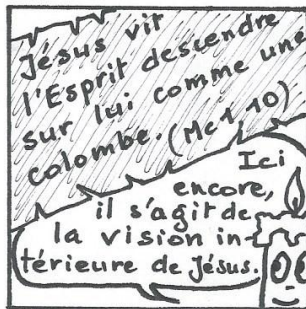 Jésus vit
l'Esprit descendre
sur lui comme une
colombe. (Mc 1 10)
Ici
encore,
il s'agit de
la vision in-
térieure de Jésus.